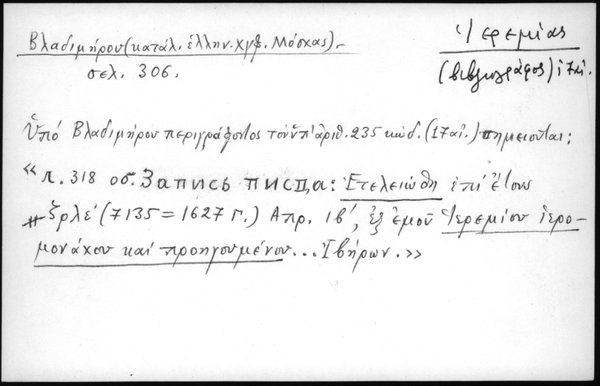 Βλαδιμήρου (κατάλ. ἑλλην. χγφ. Μόσχας).-
σελ. 306.
Ἱερεμίας
(βιβλιογράφος) 17 αἰ.
Ὑπό Βλαδιμήρου περιγράφοντος τόν ὑπ' ἀριθ. 235 κώδ. (17 αἰ.) σημειοῦται:
« л. 318 об. Запись писца: Ἐτελειώθη ἐπί ἔτους
͵ζρλέ (7135 = 1627 г.) Ἀπρ. ιβ', ἐξ ἐμοῦ Ἱερεμίου ἱερο-
μονάχου καί προηγουμένου... Ἰβήρων. »